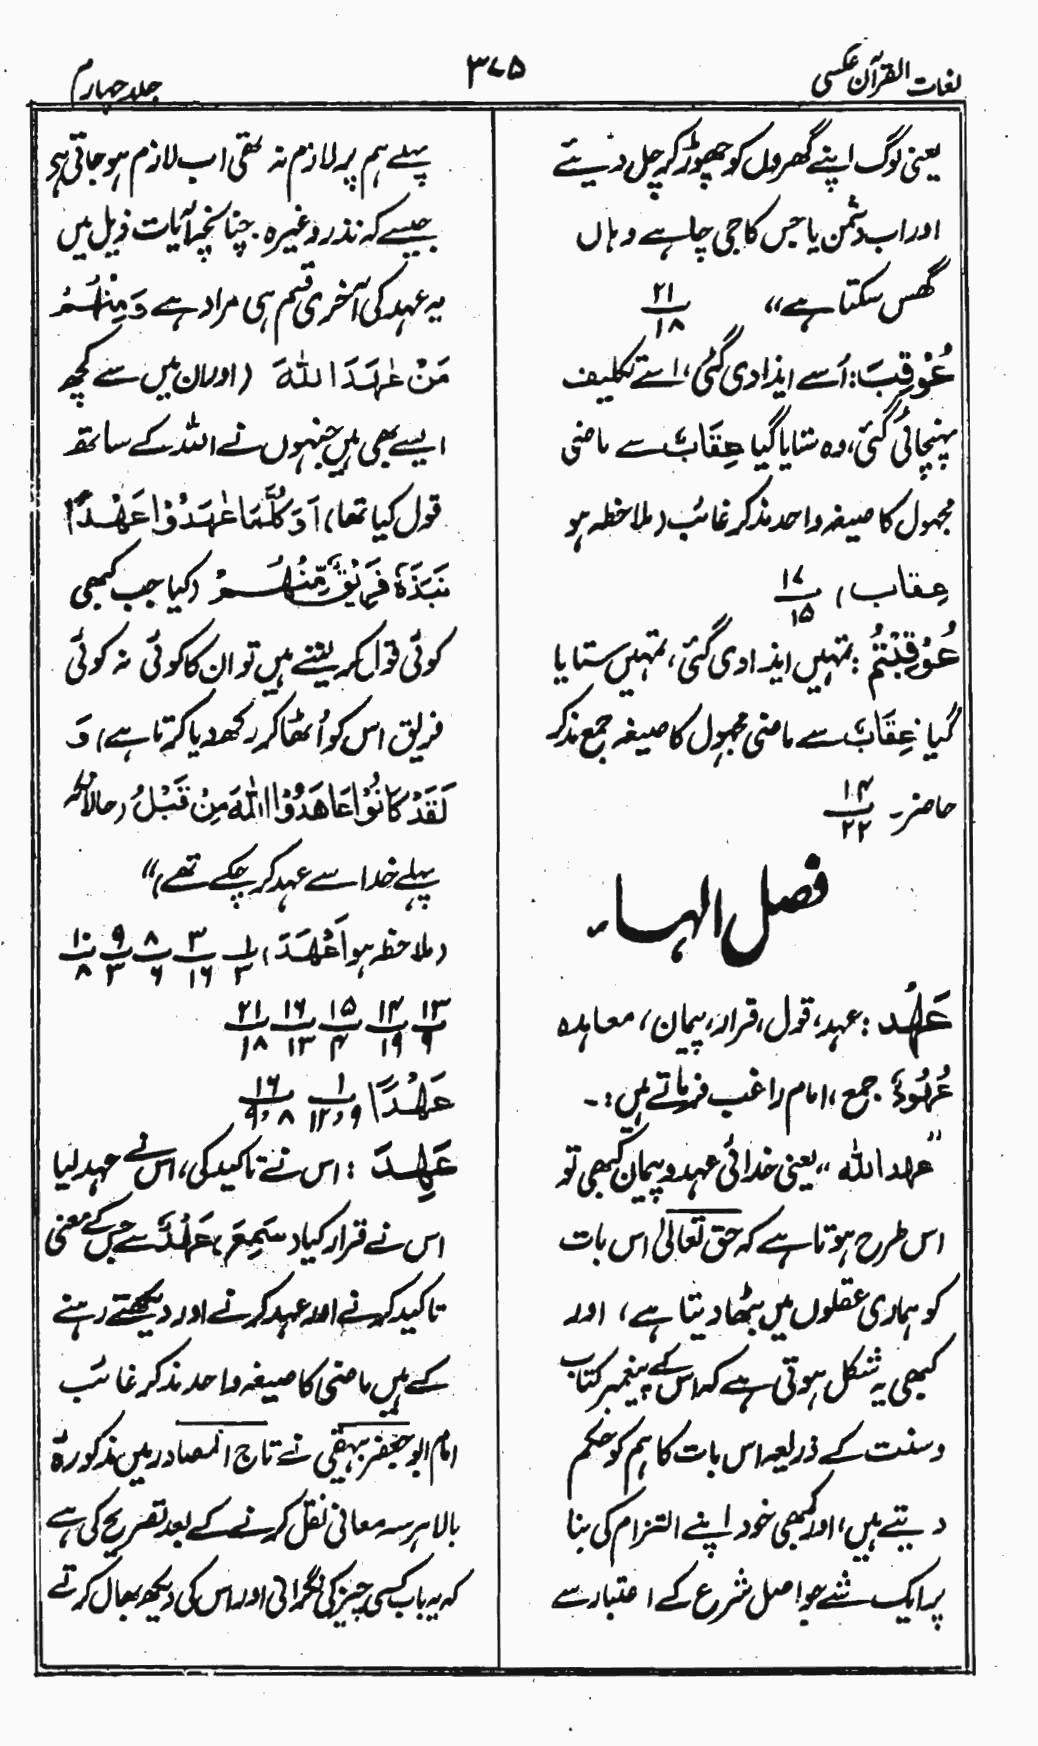 لغات القرآن عکسی
۳۷۵
جلد چہارم
یعنی لوگ اپنے گھروں کو چھوڑ کر چل دیئے
اور اب دشمن یا جس کا جی چاہے وہاں
گھس سکتا ہے،، ۲۱/۱۸
عُوْقِبَ: اُسے ایذا دی گئی، اسے تکلیف
پہنچائی گئی، وہ ستایا گیا عِقَابٌ سے ماضی
مجہول کا صیغہ واحد مذکر غائب (ملاحظہ ہو
عِقاب) ۱۷/۱۵
عُوْقِبْتُمْ: تمہیں ایذا دی گئی، تمہیں ستایا
گیا عِقَابٌ سے ماضی مجہول کا صیغہ جمع مذکر
حاضر۔ ۱۴/۲۲
فصل الہا۔
عَهْد: عہد، قول، قرار، پیمان، معاہدہ
عُهُودٌ جمع، امام راغب فرماتے ہیں:۔
"عہد اللہ،، یعنی خدائی عہد و پیمان کبھی تو
اس طرح ہوتا ہے کہ حق تعالٰی اس بات
کو ہماری عقلوں میں بٹھا دیتا ہے، اور
کبھی یہ شکل ہوتی ہے کہ اس کے پیغمبر کتاب
و سنت کے ذریعہ اس بات کا ہم کو حکم
دیتے ہیں، اور کبھی خود اپنے التزام کی بنا
پر ایک شے جو اصل شرع کے اعتبار سے
پہلے ہم پر لازم نہ تھی اب لازم ہو جاتی ہی
جیسے کہ نذر وغیرہ۔ چنانچہ آیات ذیل میں
یہ عہد کی آخری قسم ہی مراد ہے وَمِنْهُمْ
مَنْ عٰهَدَ اللّٰهَ (اور ان میں سے کچھ
ایسے بھی ہیں جنہوں نے اللہ کے ساتھ
قول کیا تھا) اَوَكُلَّمَا عٰهَدُوْا عَهْدًا
نَبَذَهٗ فَرِيْقٌ مِّنْهُمْ (کیا جب کبھی
کوئی قول کر لیتے ہیں تو ان کا کوئی نہ کوئی
فریق اس کو اُٹھا کر رکھ دیا کرتا ہے) وَ
لَقَدْ كَانُوْا عَاهَدُوْا اللّٰهَ مِنْ قَبْلُ (حالانکہ
پہلے خدا سے عہد کر چکے تھے)"
(ملاحظہ ہو اَعْهَدَ) ۱/۳ ۳/۱۶ ۸/۶ ۹/۳ ۱۰/۸
۱۳/۹ ۱۴/۱۹ ۱۵/۴ ۱۶/۱۳ ۲۱/۱۸
عَهْدًا ۱/۱۲،۹ ۱۶/۹،۸
عَهِدَ: اس نے تاکید کی، اس نے عہد لیا
اس نے قرار کیا (سَمِعَ) عَهْدٌ سے جس کے معنی
تاکید کرنے اور عہد کرنے اور دیکھتے رہنے
کے ہیں ماضی کا صیغہ واحد مذکر غائب
امام ابو جعفر بیہقی نے تاج المصادر میں مذکورۂ
بالا ہر سہ معانی نقل کرنے کے بعد تصریح کی ہے
کہ یہ باب کسی چیز کی نگرانی اور اس کی دیکھ بھال کرتے